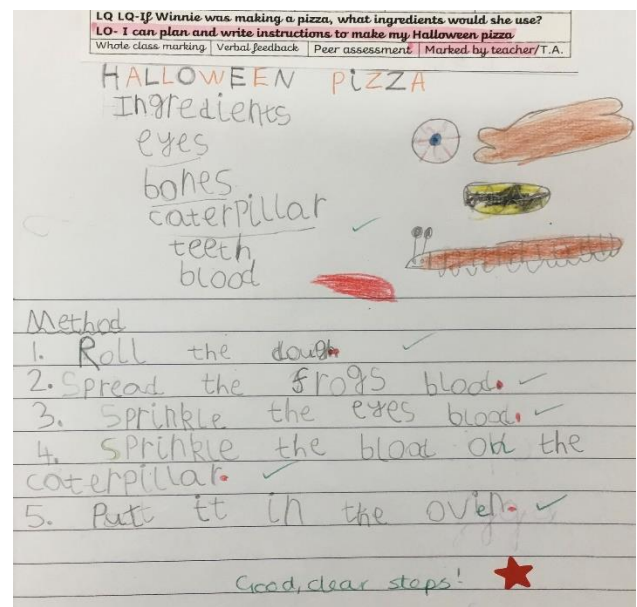 LQ LQ-If Winnie was making a pizza, what ingredients would she use?
LO- I can plan and write instructions to make my Halloween pizza
Whole class marking Verbal feedback Peer assessment Marked by teacher/T.A.
HALLOWEEN PiZZA
Ingredients
eyes
bones
caterpillar
teeth
blood
Method
1. Roll the dough.
2. Spread the frogs blood.
3. Sprinkle the eyes blood.
4. Sprinkle the blood on the
caterpillar.
5. Putt it in the oven.
Good, clear steps!